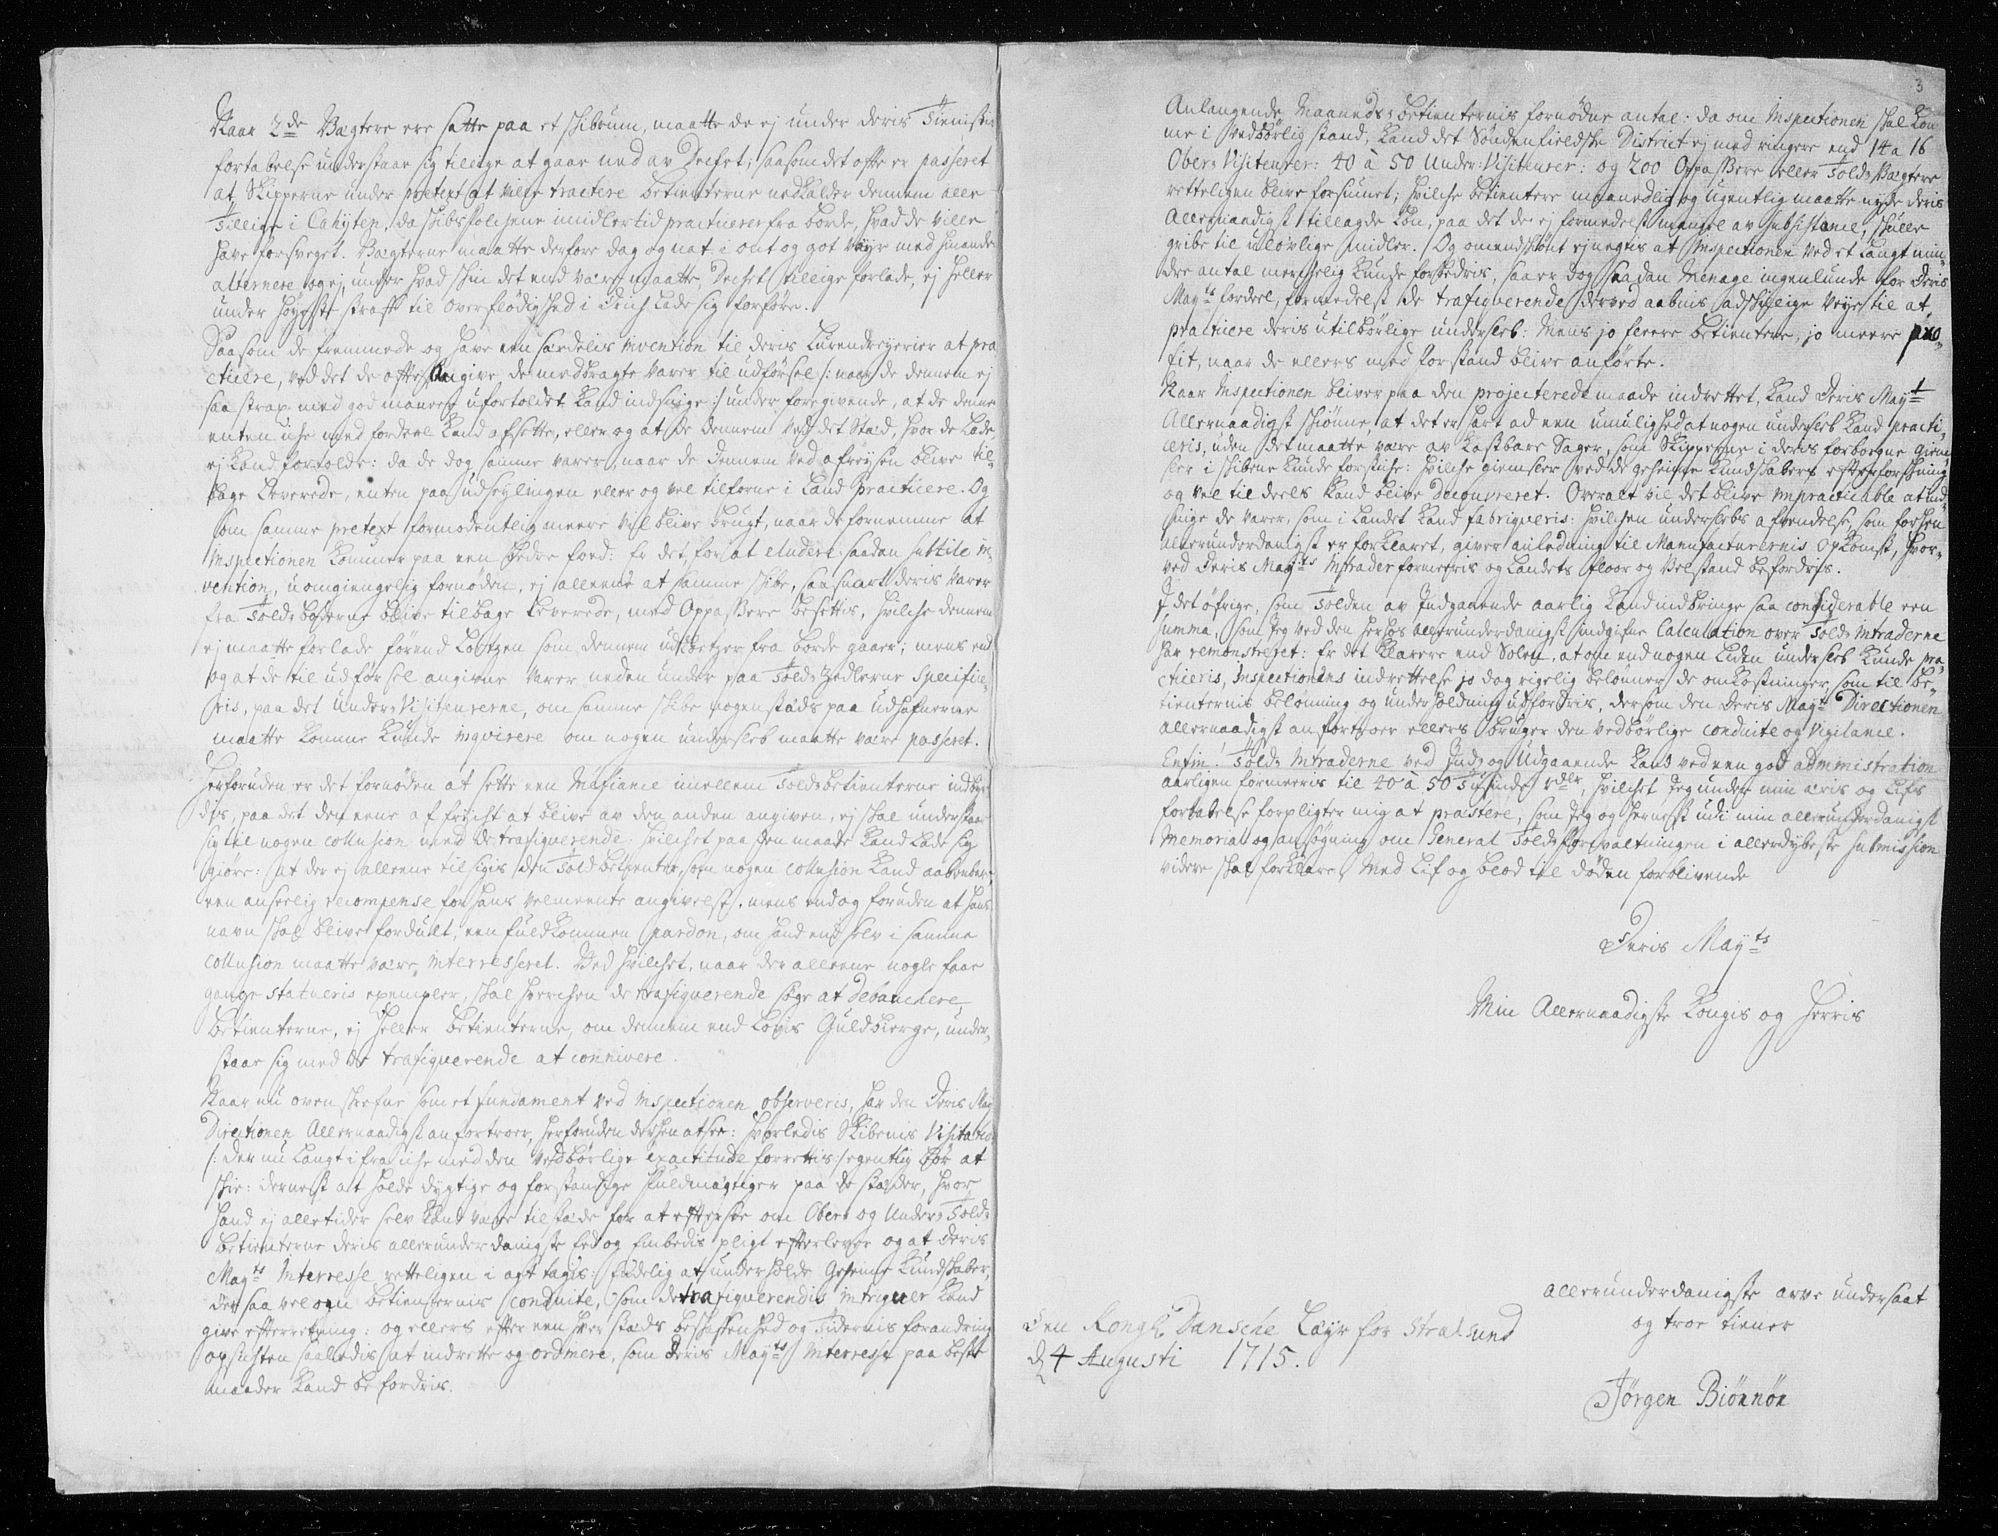 Naar 2de Vægtere ere satte paa et skibrum, maatte de ej under deris Tienistis
fortabelse understaae sig tillige at gaae ned av Decket; saasom det offte er passeret
at Skipperne under prætext at ville tractere betienterne nedkalder dennem alle
Tillige i Cahyten, da skibsfolkene imidlertid practicerer fra borde, hvad de ville
have forsveget. Vægterne maatte derfore dag og nat i ont og got veyr med hinanden
alternere og ej, under hvad skin det end være maatte, Decket tillige forlade, ej heller
under høyeste straff til overflødighed i drich lade sig forføre.
Saasom de fremmede og have een særdelis invention til deris Lurendreyerier at pra-
cticere, ved det de offte angive de medbragte varer til udførsel /: naar de dennem ej
saa strax med god maneer ufortoldet kand indsnige :/ under foregivende, at de denne
enten icke med fordeel kand afsette, eller og at de dennem ved det Stæd, hvor de Lade,
ej kand fortolde: da de dog samme varer, naar de dennem ved afreysen blive til-
bage Leverede, enten paa udseylingen eller og vel tilforne i Land practicere. Og
som samme prætext formodentlig meere vil blive brugt, naar de fornemme at
Inspectionen kommer paa een bedre foed: Er det, for at eludere saadan subtile in-
vention, uomgiengelig fornøden, ej alleene at samme skibe, saa snart deris varer
fra Told-boderne blive tilbage Leverede, med Oppassere besettis, hvilcke dennem
ej maatte forlade førend Lodtzen som dennem udlodtzer fra borde gaaer; mens end
og at de til udførsel angivne varer neden under paa Told-Zedlerne specific-
eris, paa det Under-Visiteurerne, om samme skibe nogenstæds paa udhafnerne
maatte komme kunde inqvirere om nogen underslæb maatte være passeret.
Herforuden er det fornøden at sette een Mefiance imellem Toldbetienterne indbyr-
dis, paa det den eene af frygt at blive av den anden angiven, ej skal understaae
sig til nogen collusion med de trafiqverende: hvilcket paa den maade kand lade sig
giøre: at der ej alleene til sigis den Told betienter, som nogen collusion kand aabenbare,
een anseelig recompense for hans velmeente angivelse, mens endog foruden at hans
navn skal blive fordult, een fuldkommen pardon, om hand end self i samme
collusion maatte være interresseret. Ved hvilcket, naar der alleene nogle faae
gange statueris exempler, skal hverchen de trafiqverende søge at debauchere
betienterne, ej heller betienterne, om dennem end lovis Guldbierge, under-
staae sig med de trafiqverende at connivere.
Naar nu ovenskrefne som et fundament ved Inspectionen observeris, har den Deris May
Directionen Allernaadigst anfortroer, herforuden desken at see: hvorledis Skibenis Visitation
/: der nu langt ifra icke med den vedbørlige exactitude forrettis :/ egentlig bør at
skie: dernest at holde dygtige og forstandige fuldmægtiger paa de stæder, hvor
hand ej alletider self kand være tilstæde for at effterse om Ober- og Under-Told-
betienterne deris allerunderdanigste Eed og Embedis pligt effterlever og at Deris
Mayts Interresse retteligen i agt tagis: Endelig at underholde Geheime kundskaber,
der saa vel om betienternis conduite, som de trafiqverendis intriguer kand
give effterretning: og ellers effter een hver stæds beskaffenhed og Tidernis forandring
opsichten saaledis at indrette og ordinere, som Deris Mayts Interresse paa beste
maader kand befordris.
3
Anlangende Maaneds-betienternis fornødne antal: da om Inspectionen skal kom-
me i vedbørlig stand, kand det Søndenfieldske District ej med ringere end 14 a 16
Ober-Visiteurer: 40 à 50 Under-Visiteurer: og 200 Oppassere eller Told-Vægtere
retteligen blive forsiunet; hvilcke betientere maanedlig og ugentlig maatte nyde deris
Allernaadigst tillagde løn, paa det de ej formedelst mangel av subsistance, skulle
gribe til ulovlige midler. Og omendskiønt ej negtis at Inspectionen ved et langt min-
dre antal merchelig kunde forbedris, saa er dog saadan Menage ingenlunde for Deris
Mayts fordeel, formedelst de trafiqverende derved aabnis adskillige veye til at
practicere deris utilbørlige underslæb: Mens jo fleere betientere, jo meere pro-
fit, naar de ellers med forstand blive anførte.
Naar Inspectionen bliver paa den projecterede maade indrettet, kand Deris Mayt
Allernaadigst skiønne, at det er hart ad een umulighed at nogen underslæb kand practi-
ceris, uden det maatte være av kostbare Sager, som Skipperne i deris forborgne giem-
sler i skibene kunde forstikke: hvilcke giemsler ved de geheime kundskabers effterforskning
og vel til deels kand blive decouvreret. Overalt vil det blive impracticable at ind-
snige de varer, som i Landet kand fabriqveris: hvilcken underslæbs afvendelse, som forhen
allerunderdanigst er forklaret, giver anledning til Manufacturernis opkomst, hvor-
ved Deris Mayts Intrader formeeris og Landets floor og velstand befordris.
I det øfrige, som Tolden av Indgaaende aarlig kand indbringe saa considerable een
summa, som Jeg ved den herhos allerunderdanigst indgifne Calculation over Told-intraderne
har remonstreret: Er det klarere end Solen, at om end nogen liden underslæb kunde pra-
cticeris, Inspectionens indrettelse jo dog rigelig belønner de omkostninger, som til be-
tienternis belønning og underholdning udfordris, dersom den Deris Mayts Directionen
allernaadigst anfortroer ellers bruger den vedbørlige conduite og Vigilance.
Enfin! Told-Intraderne ved Ind- og Udgaaende kand ved een god administration
aarligen formeeris til 40 à 50 Tusinde rdlr, hvilcket Jeg under min æris og Lifs
fortabelse forpligter mig at præstere, som Jeg og hernest udi min allerunderdanigst
Memorial og ansøgning om General Told-forvaltningen i allerdybeste submission
videre skal forklare, Med Lif og blod til døden forblivende
Deris Mayts
Min Allernaadigste Kongis og Herris
allerunderdanigste arve undersaat
og troe tiener
Jørgen Biønnøn
Den Kongl: Dansche Leyr for Stralsund
d 4 Augusti 1715.